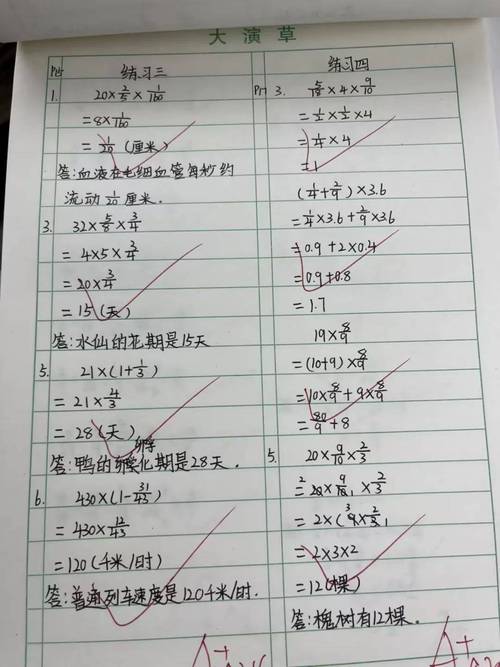 大演草
练习三
1. 20×2/5×1/160
=8×1/160
=1/20 (厘米)
答:血液在毛细血管每秒约
流动1/20厘米.
3. 32×5/8×3/4
=4×5×3/4
=20×3/4
=15(天)
答:水仙的花期是15天
5. 21×(1+1/3)
=21×4/3
=28(天)
答:鸭的孵化期是28天.
6. 430×(1-31/43)
=430×12/43
=120(千米/时)
答:普通列车速度是120千米/时.
练习四
3. 5/18×4×9/10
=1/2×1/2×4
=1/4×4
=1
(1/4+2/9)×3.6
=1/4×3.6+2/9×3.6
=0.9+2×0.4
=0.9+0.8
=1.7
19×8/9
=(10+9)×8/9
=10×8/9+9×8/9
=80/9+8
5. 20×9/10×2/3
=20×9/10×2/3
=2×(9×2/3)
=2×3×2
=12(棵)
答:槐树有12棵.
A+
A+